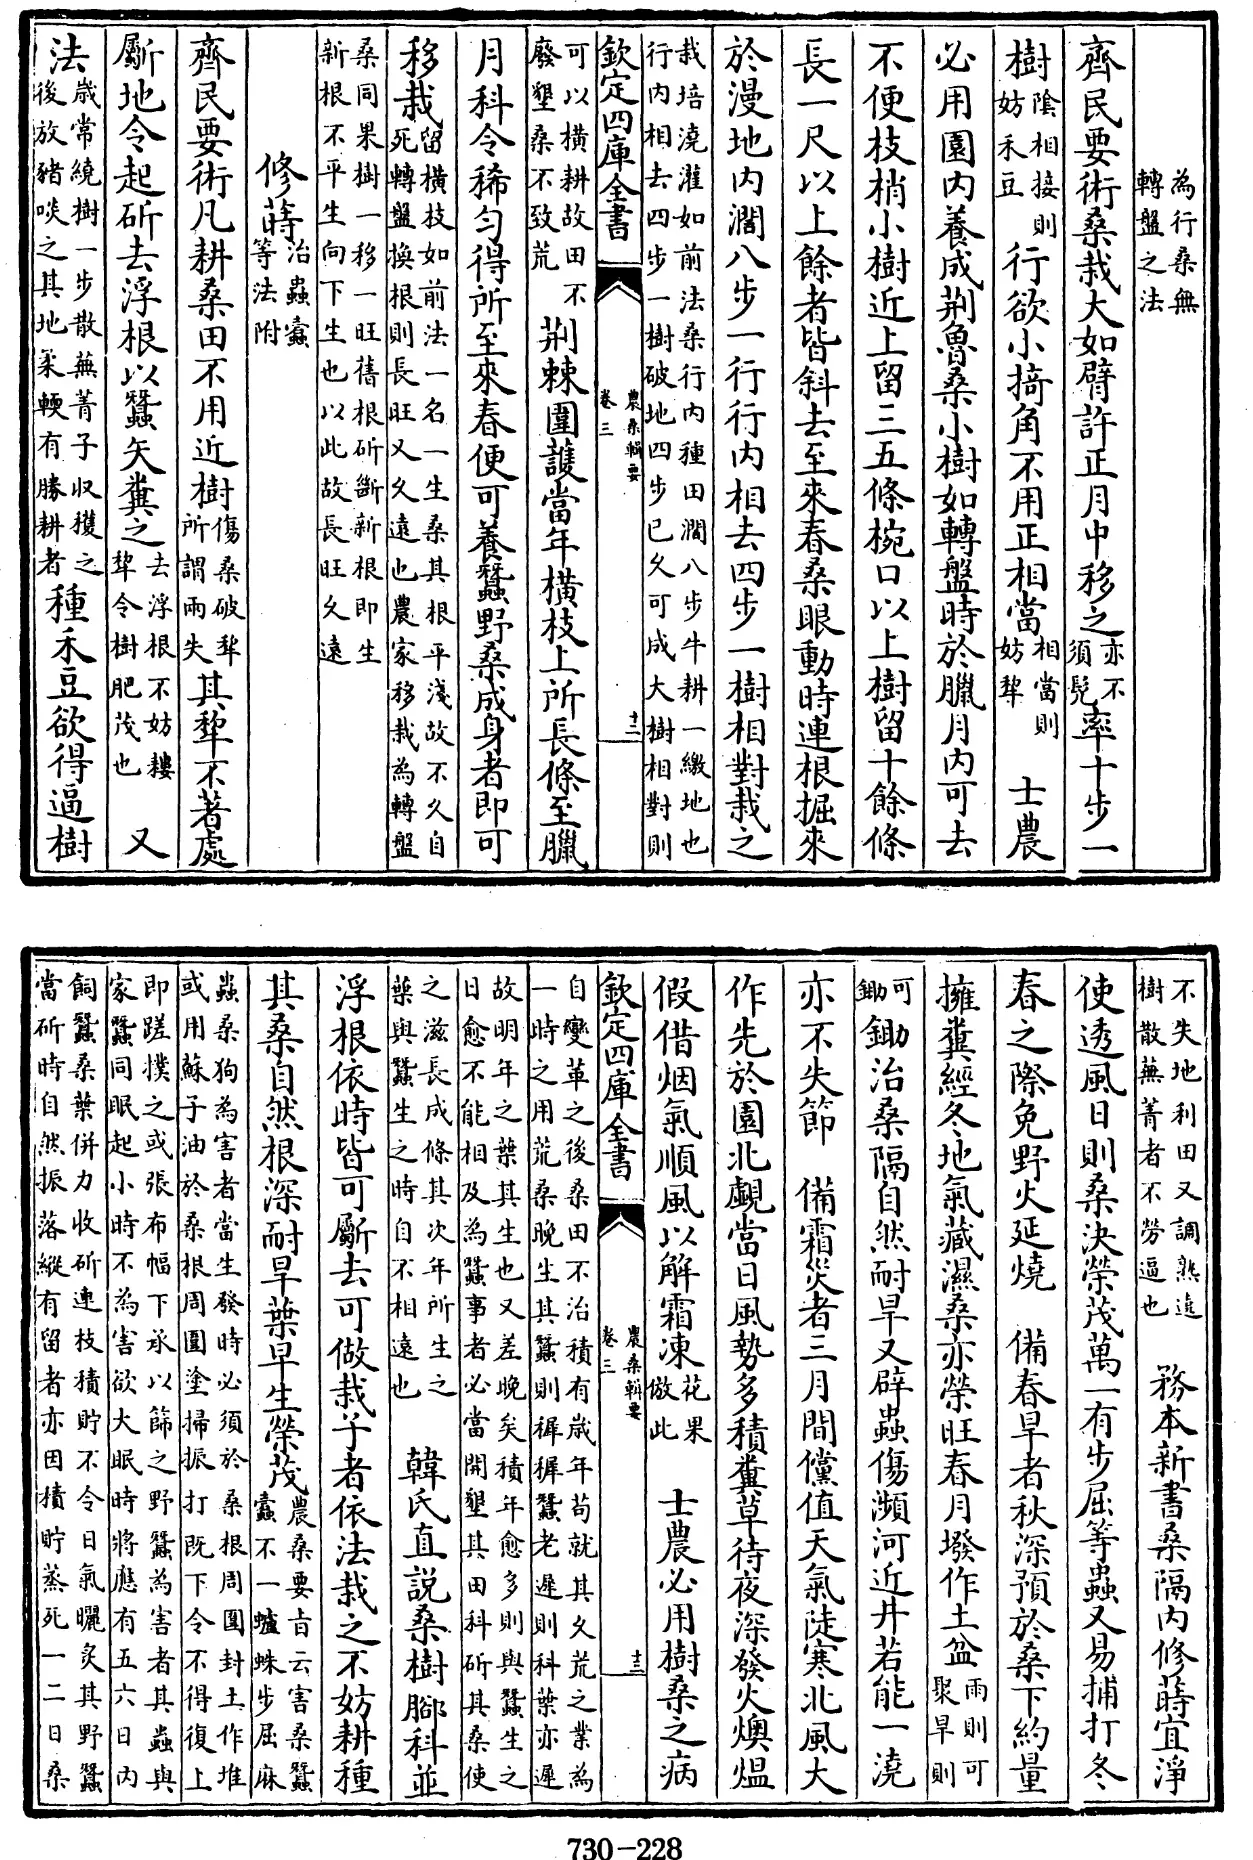 為行桑無
轉盤之法
齊民要術桑栽大如臂許正月中移之亦不須髡率十步一
樹陰相接則妨禾豆行欲小掎角不用正相當相當則妨犂　士農
必用園内養成荆魯桑小樹如轉盤時於臘月内可去
不便枝梢小樹近上留三五條椀口以上樹留十餘條
長一尺以上餘者皆斜去至來春桑眼動時連根掘來
於漫地内濶八步一行行内相去四步一樹相對栽之
栽培澆灌如前法桑行内種田濶八步牛耕一繳地也
行内相去四步一樹破地四步已久可成大樹相對則
欽定四庫全書
農桑輯要
卷三
十二
可以横耕故田不廢墾桑不致荒　荆棘圍䕶當年横枝上所長條至臘
月科令稀匀得所至來春便可養蠶野桑成身者即可
移栽留横枝如前法一名一生桑其根平淺故不久自死轉盤換根則長旺又久遠也農家移栽為轉盤
桑同果樹一移一旺舊根斫斷新根即生
新根不平生向下生也以此故長旺久遠
修蒔治蟲蠧等法附
齊民要術凡耕桑田不用近樹傷桑破犂所謂兩失其犂不著處
斸地令起斫去浮根以蠶矢糞之去浮根不妨耬犂令樹肥茂也　又
法歲常繞樹一步散蕪菁子収穫之後放豬啖之其地柔輭有勝耕者種禾豆欲得逼樹
不失地利田又調熟遶樹散蕪菁者不勞逼也　務本新書桑隔内修蒔宜淨
使透風日則桑決榮茂萬一有步屈等蟲又易捕打冬
春之際免野火延燒　備春旱者秋深預於桑下約量
擁糞經冬地氣藏濕桑亦榮旺春月墢作土盆雨則可聚旱則
可鋤鋤治桑隔自然耐旱又辟蟲傷瀕河近井若能一澆
亦不失節　備霜災者三月間儻值天氣陡寒北風大
作先於園北覷當日風勢多積糞草待夜深發火燠熅
假借烟氣順風以解霜凍花果倣此　士農必用樹桑之病
欽定四庫全書
農桑輯要
卷三
十三
自變革之後桑田不治積有歲年苟就其久荒之業為
一時之用荒桑晚生其蠶則穉穉蠶老遲則科葉亦遲
故明年之葉其生也又差晚矣積年愈多則與蠶生之
日愈不能相及為蠶事者必當開墾其田科斫其桑使
之滋長成條其次年所生之葉與蠶生之時自不相遠也　韓氏直説桑樹腳科並
浮根依時皆可斸去可做栽子者依法栽之不妨耕種
其桑自然根深耐旱葉早生榮茂農桑要㫖云害桑蠶蠧不一蠦蛛步屈麻
蟲桑狗為害者當生發時必須於桑根周圍封土作堆
或用蘇子油於桑根周圍塗掃振打既下令不得復上
即蹉撲之或張布幅下承以篩之野蠶為害者其蟲與
家蠶同眠起小時不為害欲大眠時將應有五六日内
飼蠶桑葉併力收斫連枝積貯不令日氣曬炙其野蠶
當斫時自然振落縱有留者亦因積貯蒸死一二日桑
730-228